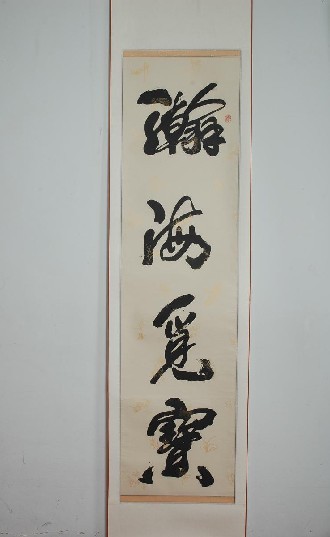 瀚海覓寶